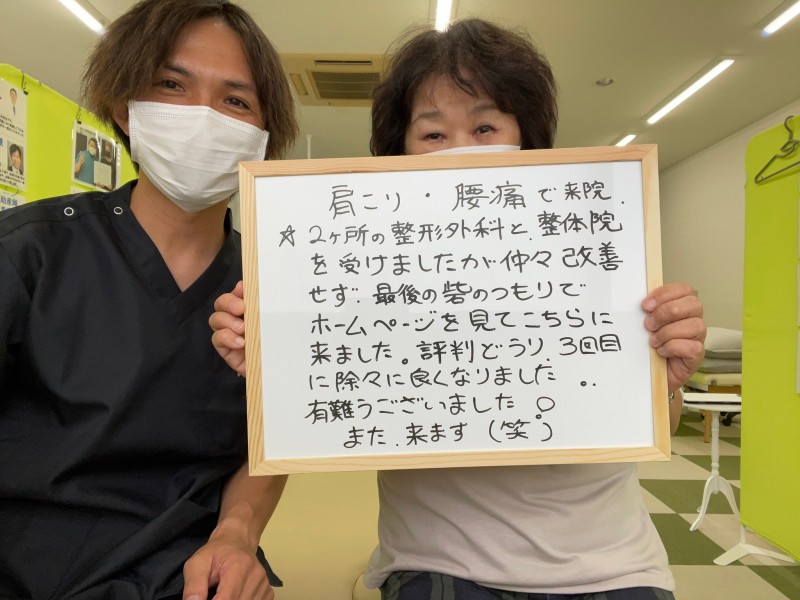 肩こり・腰痛で来院.
☆2ヶ所の整形外科と、整体院
を受けましたが仲々改善
せず.最後の砦のつもりで
ホームページを見てこちらに
来ました。評判どうり、3回目
に除々に良くなりました..
有難うございました!
また.来ます(笑)